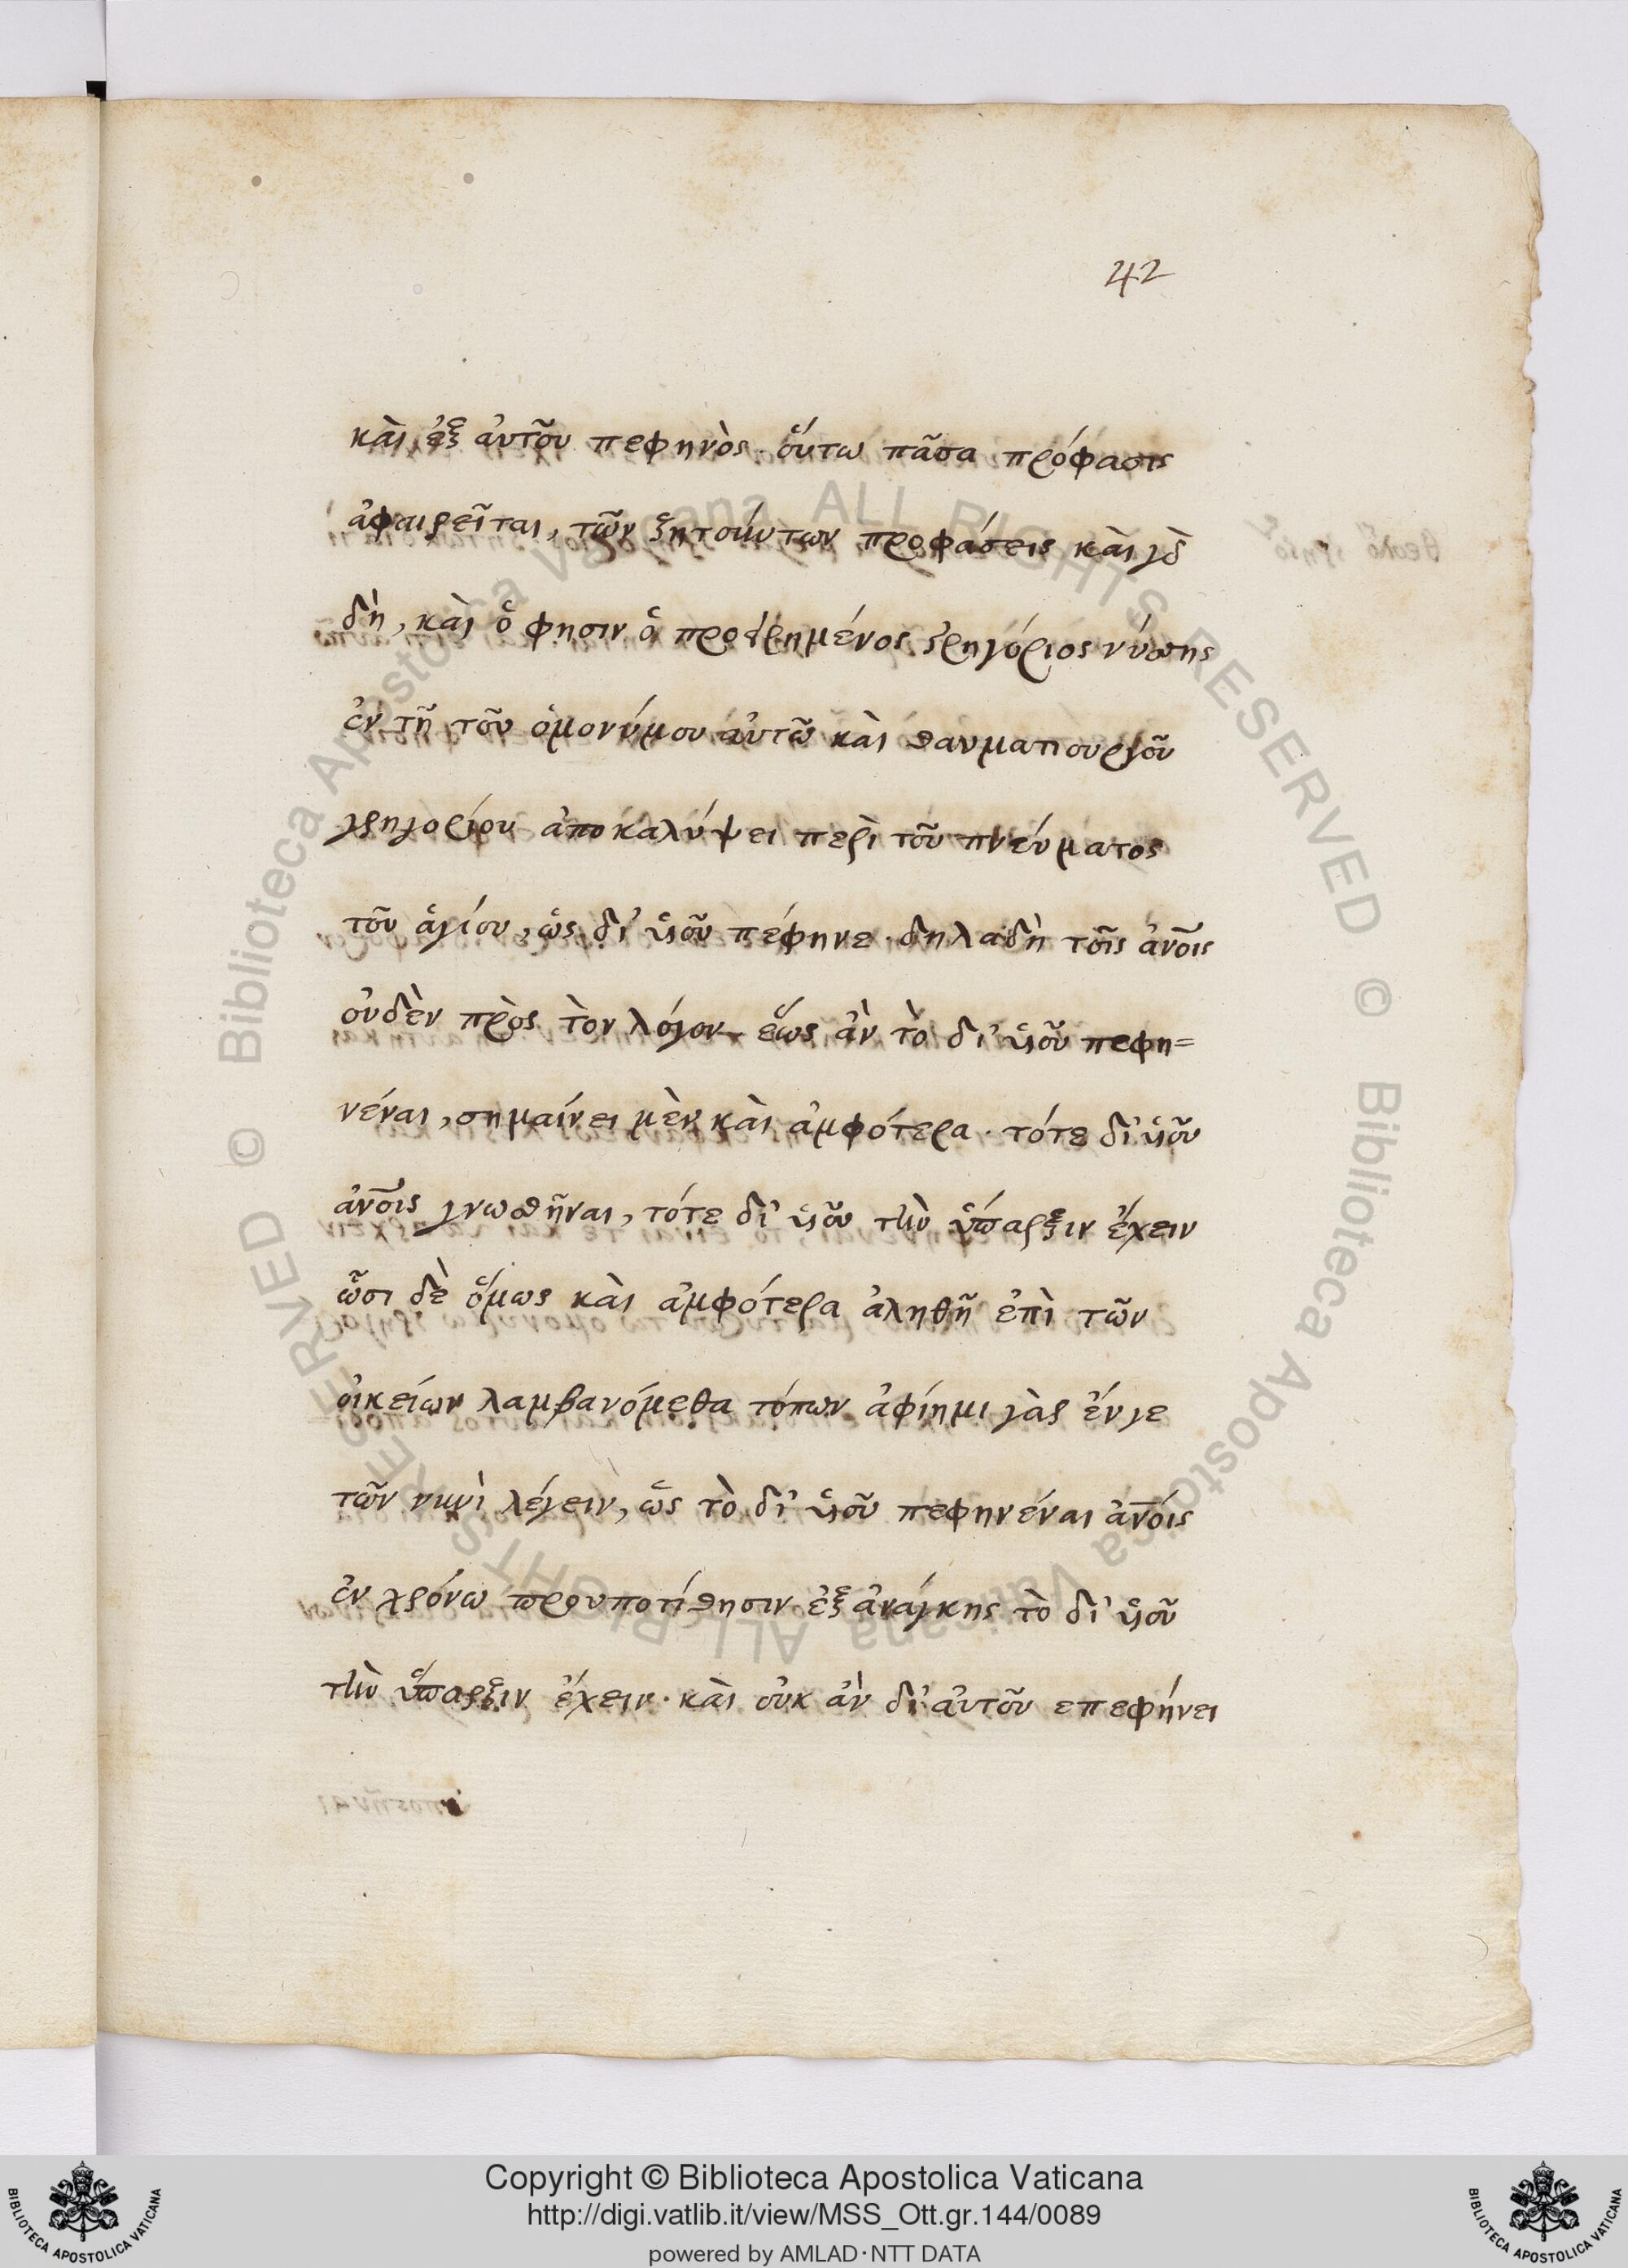 42
κὰι ἐξ ἀυτοῦ πεφηνὸς. ὅυτω πᾶσα πρόφασις
ἀφαιρεῖται, τῶν ζητούντων προφάσεις κὰι γὸ
δὴ, κὰι ὅ φησιν ὁ προειρημένος γρηγόριος νύσσης
ἐν τῇ τοῦ ὁμονύμου ἀυτῶ κὰι θαυματουργοῦ
γρηγορίου ἀποκαλύψει περὶ τοῦ πνεύματος
τοῦ ἁγίου, ὡς δι' ὑιοῦ πέφηνε. δηλαδὴ τοῖς ἀνοις
ὀυδὲν πρὸς τὸν λόγον. ἕως ἀν τὸ δι' ὑιοῦ πεφη=
νέναι, σημαίνει μὲν κὰι ἀμφότερα. τότε δι' ὑιοῦ
ἀνοις γνωσθῆναι, τότε δι' ὑιοῦ τὴν ὕπαρξιν ἔχειν
ὦσι δὲ ὅμως κὰι ἀμφότερα ἀληθῆ ἐπὶ τῶν
ὀικείων λαμβανόμεθα τόπων ἀφίημι γὰρ ἔνγε
τῶν νυνὶ λέγειν, ὡς τὸ δι' ὑιοῦ πεφηνέναι ἀνοις
ἐν χρόνω προυποτίθησιν ἐξ ἀνάγκης τὸ δι' ὑιοῦ
τὴν ὕπαρξιν ἔχειν. κὰι ὀυκ ἀν δι' ἀυτοῦ επεφήνει
Copyright © Biblioteca Apostolica Vaticana
http://digi.vatlib.it/view/MSS_Ott.gr.144/0089
powered by AMLAD·NTT DATA
BIBLIOTECA APOSTOLICA VATICANA
BIBLIOTECA APOSTOLICA VATICANA
© Biblioteca Apostolica Vaticana ALL RIGHTS RESERVED
© Biblioteca Apostolica Vaticana ALL RIGHTS RESERVED